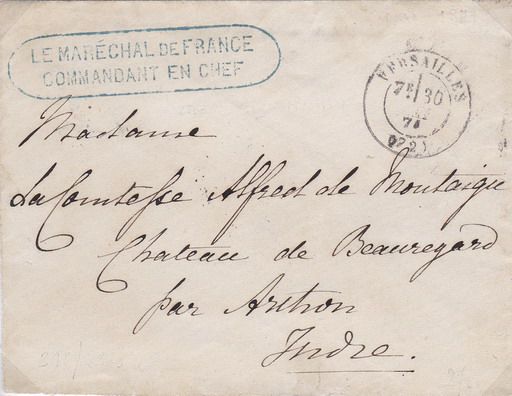 LE MARÉCHAL DE FRANCE
COMMANDANT EN CHEF
VERSAILLES
7E 30
71
Madame
La Comtesse Alfred de Montaigu
Chateau de Beauregard
par Anthon
Indre.